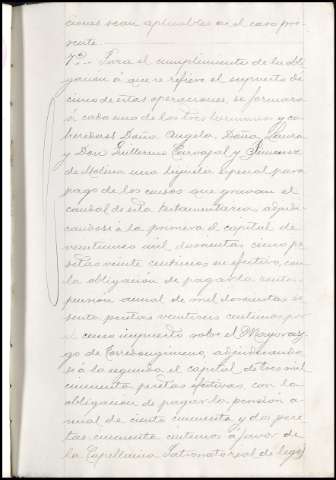 ciones sean aplicables en el caso pre-
sente.
7ª.- Para el cumplimiento de la obli-
gacion á que se refiere el supuesto de-
cimo de estas operaciones, se formará
á cada uno de los tres hermanos y co-
herederos Doña Angela, Doña Laura
y Don Guillermo Carvajal y Jimenez
de Molina una hijuela especial para
pago de los censos que gravan el
caudal de esta testamentaria, adjudi-
candose á la primera el capital de
veintiun mil doscientas cinco pe-
setas veinte centimos en efectivo, con
la obligacion de pagar la renta ó
pension anual de mil doscientas se-
senta pesetas veintiseis centimos por
el censo impuesto sobre el Mayoraz-
go de Torredonjimeno, adjudicando-
se á la segunda el capital de tres mil
cincuenta pesetas efectivas, con la
obligacion de pagar la pension a-
nual de ciento cincuenta y dos pese-
tas cincuenta centimos á favor de
la Capellania Patronato real de legos